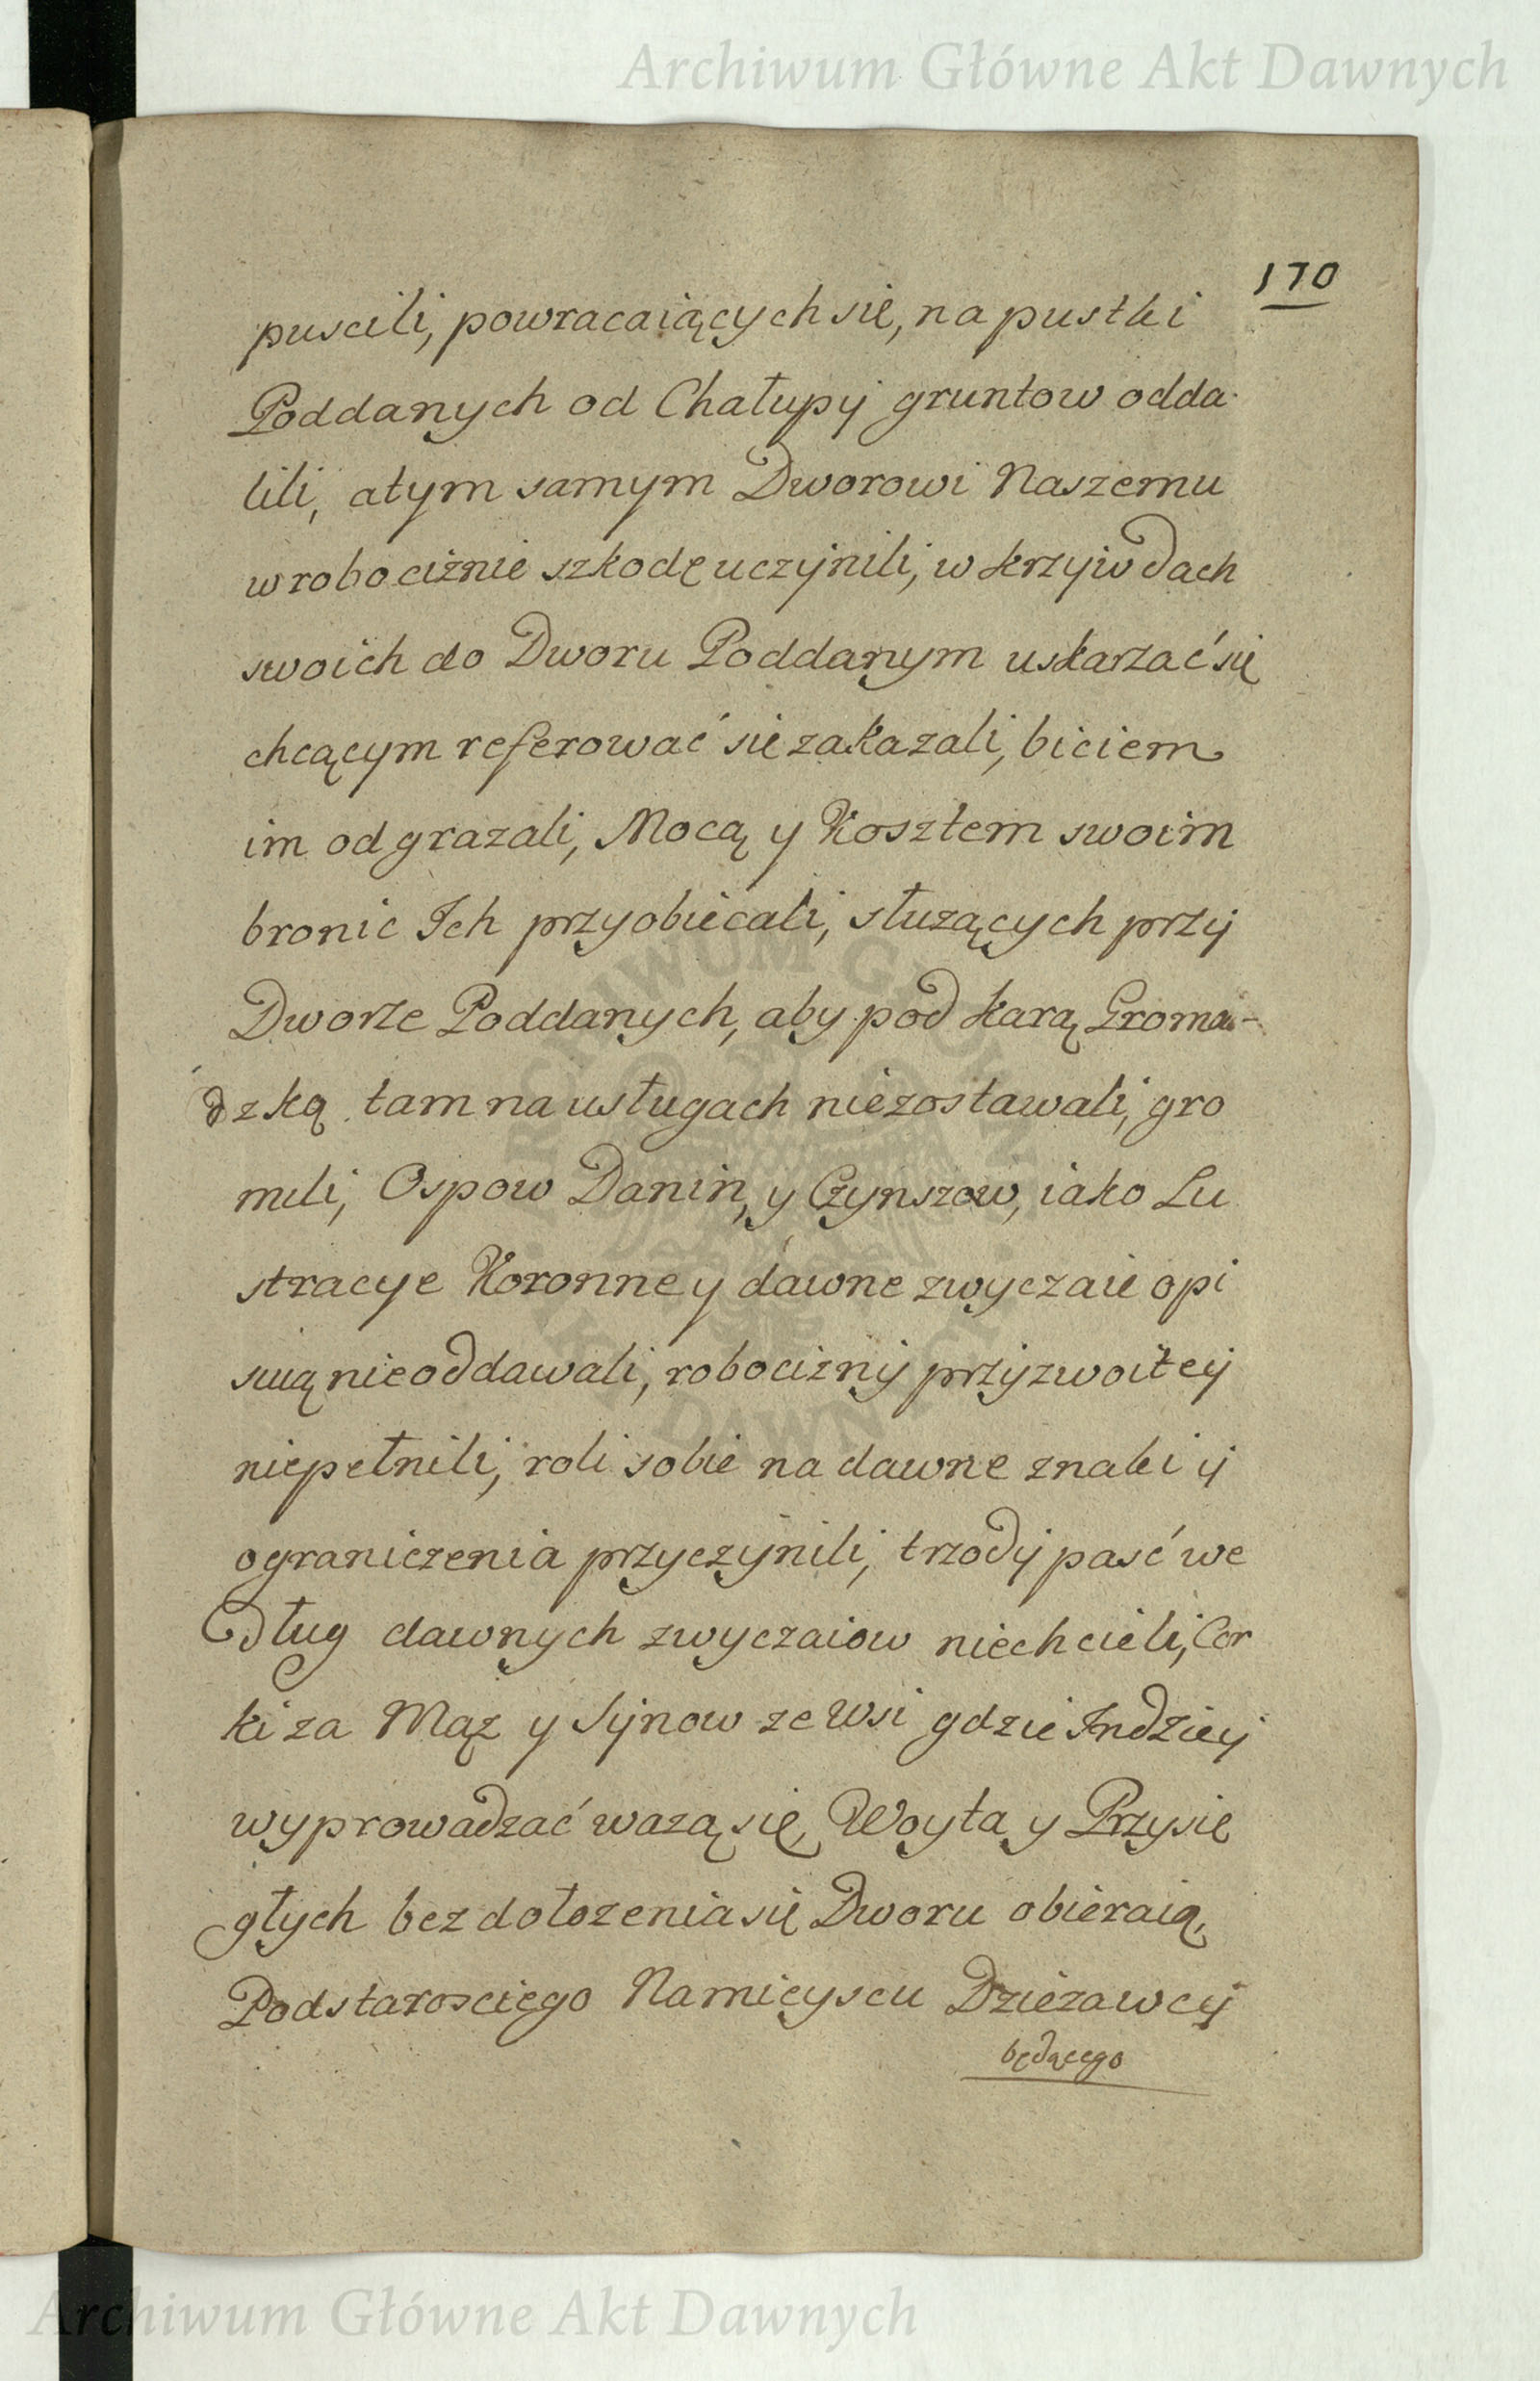 Archiwum Główne Akt Dawnych
170
puscili, powracaiących się, na pustki
Poddanych od Chałupÿ gruntow odda
lili, atym samym Dworowi Naszemu
w robociźnie szkodę uczÿnili, w krzÿwdach
swoich do Dworu Poddanym uskarzać się
chcącym referować się zakazali, biciem
im odgrazali, Mocą y Kosztem swoim
bronic Ich przyobiecali, słuzących przÿ
Dworze Poddanych, aby pod karą Groma-
dzką tam na usługach niezostawali, gro
mili, Ospow Danin, y Czynszow, iako Lu
stracye Koronne y dawne zwyczaie opi
suią nieoddawali, robociznÿ przÿzwoiteÿ
niepełnili, roli sobie na dawne znaki ÿ
ograniczenia przyczÿnili, trzodÿ pasć we
dług dawnych zwyczaiow niechcieli, Cor
ki za Mąz y Sÿnow ze Wsi gdzie Indzieÿ
wyprowadzać wazą się, Woyta y Przysię
głych bez dołozenia się Dworu obieraią,
Podstarosciego Namieyscu Dzierzawcÿ
będącego
ARCHIWUM GŁÓWNE AKT DAWNYCH
Archiwum Główne Akt Dawnych